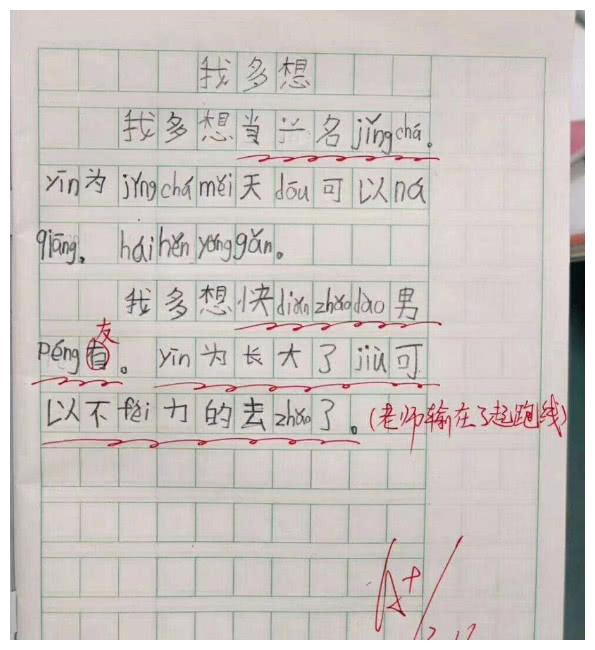 我多想
我多想当一名jǐngchá。
yīn为jǐngchá měi天dōu可以ná
qiāng，hái hěn yǒng gǎn。
我多想快diǎn zhǎo dào男
péng有友。yīn为长大了jiù可
以不fèi力的去zhǎo了。(老师输在了起跑线)
A+